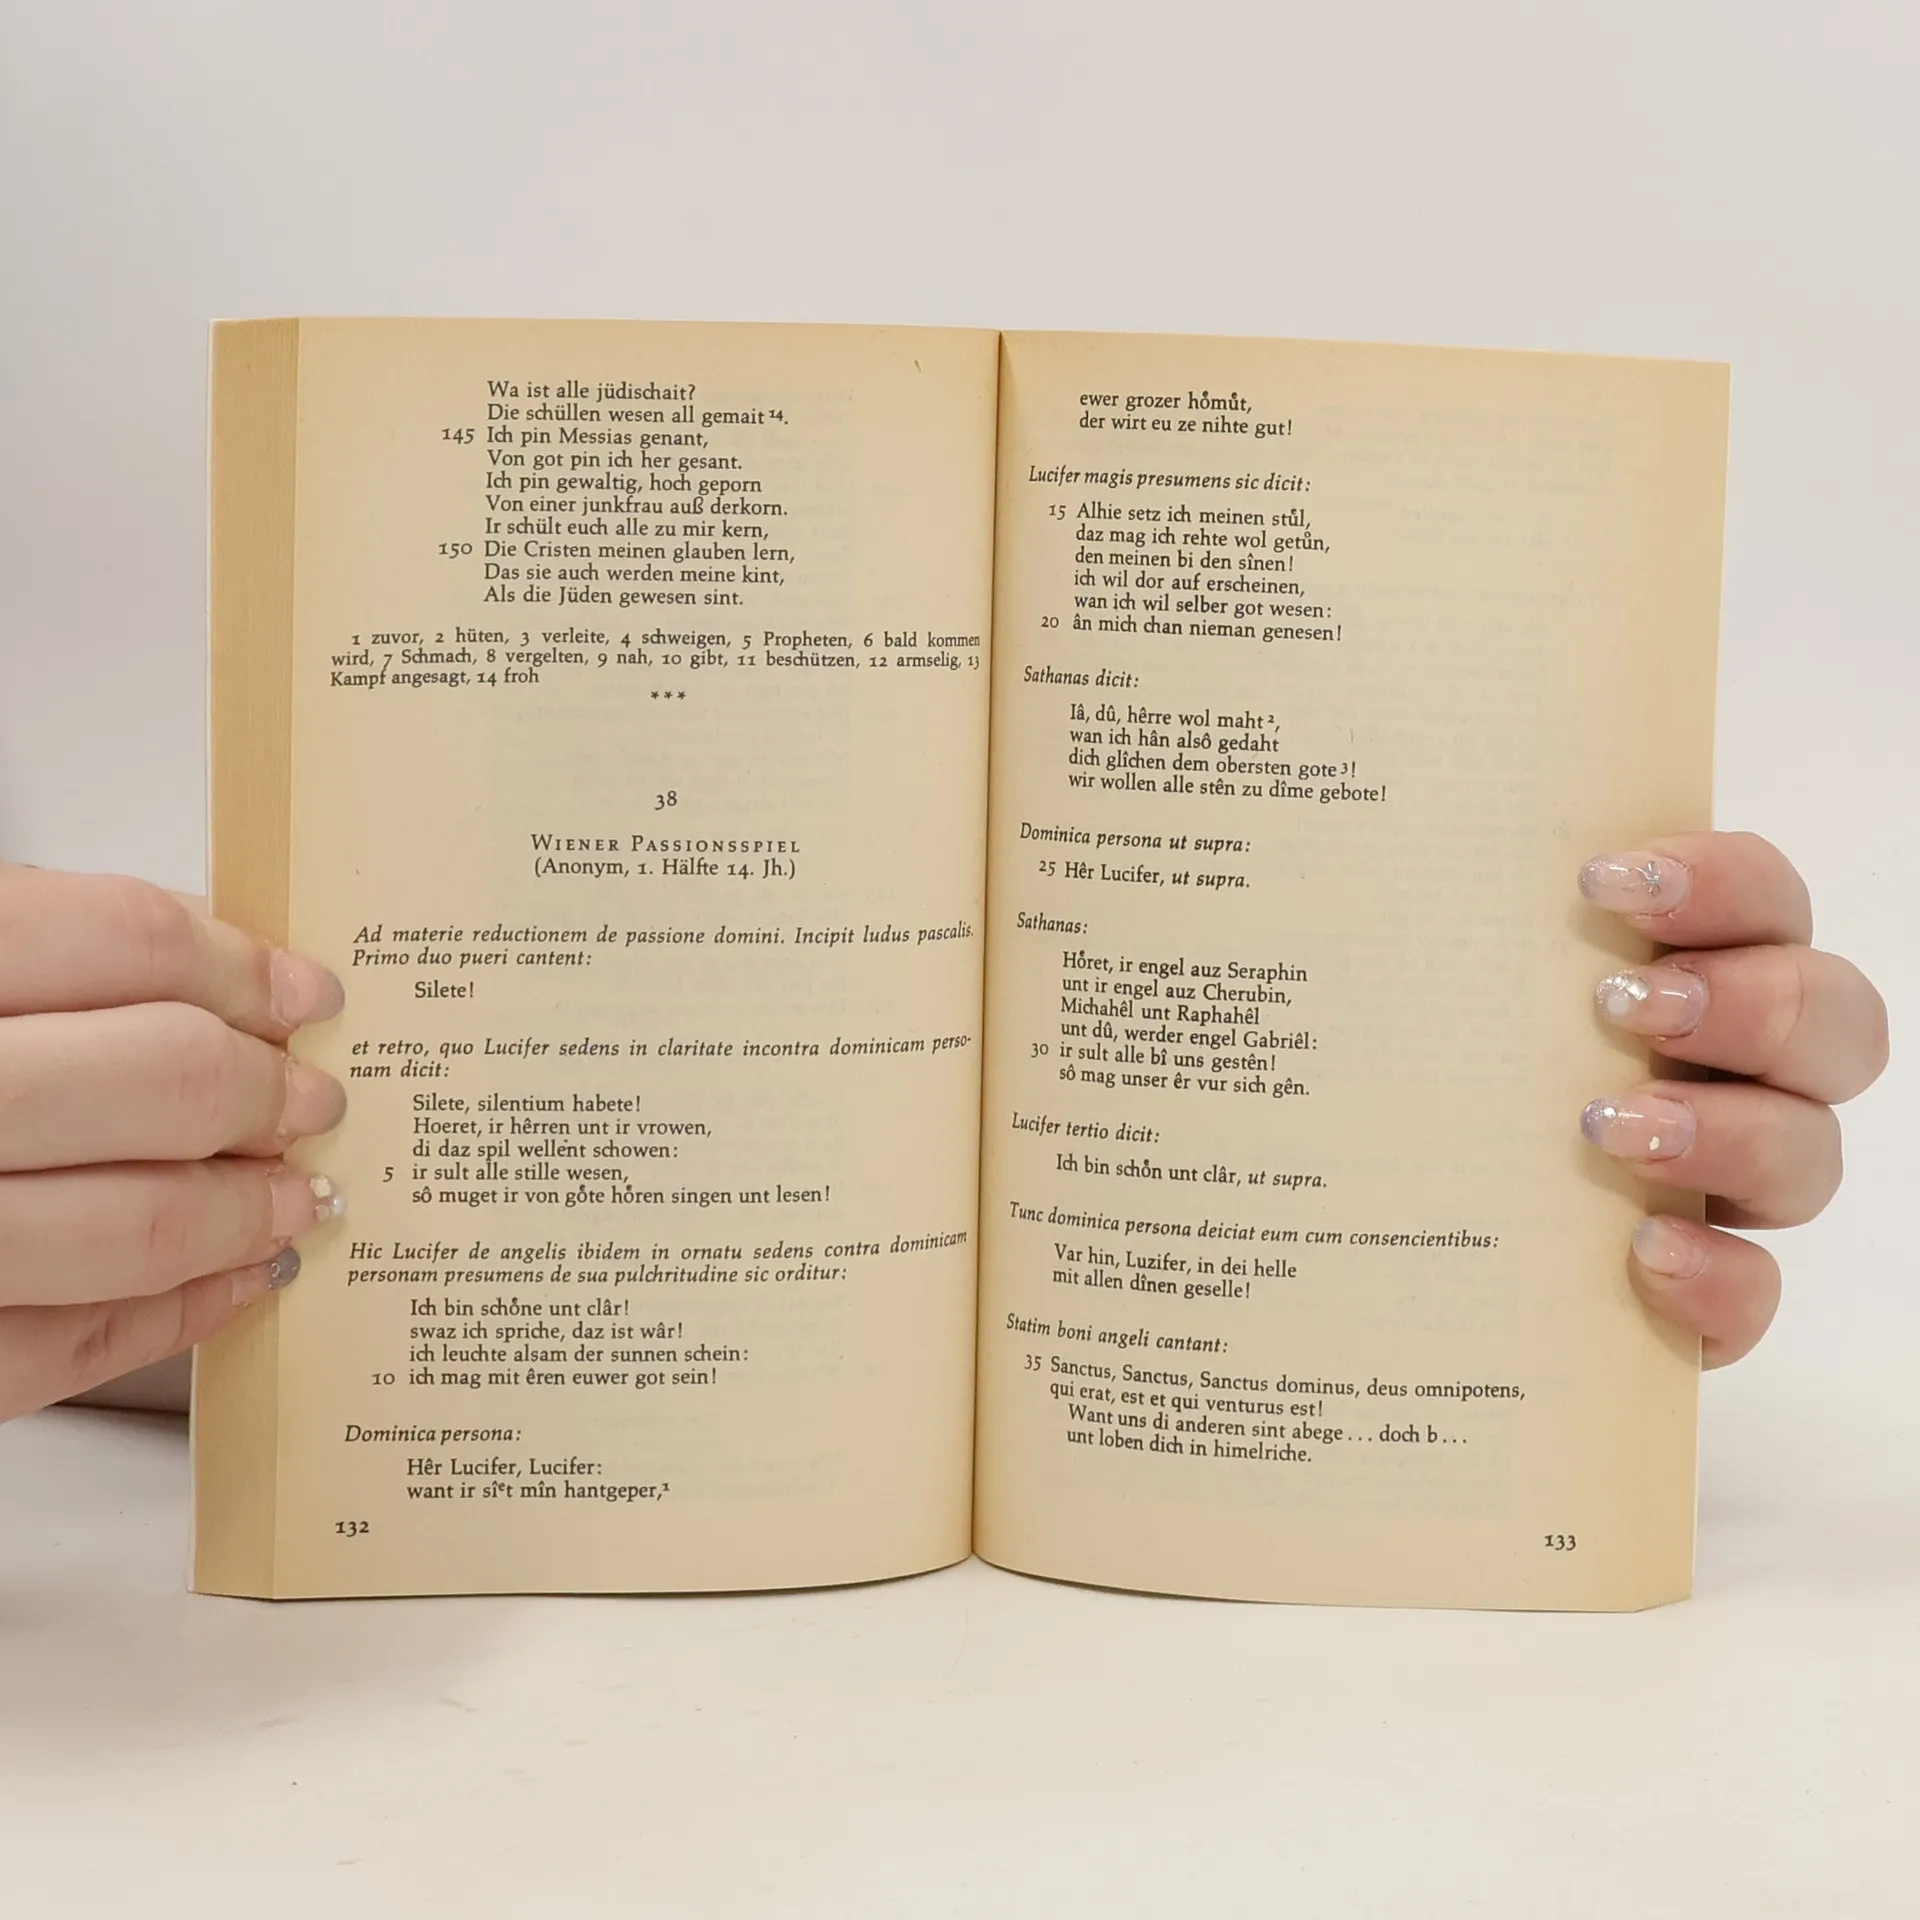 Wa ist alle jüdischait?
Die schüllen wesen all gemait ¹⁴.
145 Ich pin Messias genant,
Von got pin ich her gesant.
Ich pin gewaltig, hoch geporn
Von einer junkfrau auß derkorn.
Ir schült euch alle zu mir kern,
150 Die Cristen meinen glauben lern,
Das sie auch werden meine kint,
Als die Jüden gewesen sint.
1 zuvor, 2 hüten, 3 verleite, 4 schweigen, 5 Propheten, 6 bald kommen
wird, 7 Schmach, 8 vergelten, 9 nah, 10 gibt, 11 beschützen, 12 armselig, 13
Kampf angesagt, 14 froh
***
38
WIENER PASSIONSSPIEL
(Anonym, 1. Hälfte 14. Jh.)
Ad materie reductionem de passione domini. Incipit ludus pascalis.
Primo duo pueri cantent:
Silete!
et retro, quo Lucifer sedens in claritate incontra dominicam perso-
nam dicit:
Silete, silentium habete!
Hoeret, ir hêrren unt ir vrowen,
di daz spil wellent schowen:
5 ir sult alle stille wesen,
sô muget ir von gůte hůren singen unt lesen!
Hic Lucifer de angelis ibidem in ornatu sedens contra dominicam
personam presumens de sua pulchritudine sic orditur:
Ich bin schoͤne unt clâr!
swaz ich spriche, daz ist wâr!
ich leuchte alsam der sunnen schein:
10 ich mag mit êren euwer got sein!
Dominica persona:
Hêr Lucifer, Lucifer:
want ir sîᵉt mîn hantgeper,¹
132
ewer grozer hoͤmuͤt,
der wirt eu ze nihte gut!
Lucifer magis presumens sic dicit:
15 Alhie setz ich meinen stůl,
daz mag ich rehte wol getůn,
den meinen bi den sînen!
ich wil dor auf erscheinen,
wan ich wil selber got wesen:
20 ân mich chan nieman genesen!
Sathanas dicit:
Iâ, dû, hêrre wol maht ²,
wan ich hân alsô gedaht
dich glîchen dem obersten gote ³!
wir wollen alle stên zu dîme gebote!
Dominica persona ut supra:
25 Hêr Lucifer, ut supra.
Sathanas:
Hoͤret, ir engel auz Seraphin
unt ir engel auz Cherubin,
Michahêl unt Raphahêl
unt dû, werder engel Gabriêl:
30 ir sult alle bî uns gestên!
sô mag unser êr vur sich gên.
Lucifer tertio dicit:
Ich bin schoͤn unt clâr, ut supra.
Tunc dominica persona deiciat eum cum consencientibus:
Var hin, Luzifer, in dei helle
mit allen dînen geselle!
Statim boni angeli cantant:
35 Sanctus, Sanctus, Sanctus dominus, deus omnipotens,
qui erat, est et qui venturus est!
Want uns di anderen sint abege ... doch b ...
unt loben dich in himelriche.
133